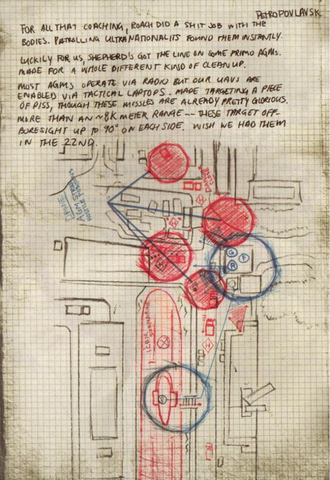 PETROPOVLAVSK
FOR ALL THAT COACHING, ROACH DID A SHIT JOB WITH THE
BODIES. PATROLLING ULTRANATIONALISTS FOUND THEM INSTANTLY.
LUCKILY FOR US, SHEPHERD'S GOT THE LINE ON SOME PRIMO AGMS.
MADE FOR A WHOLE DIFFERENT KIND OF CLEANUP.
MOST AGMS OPERATE VIA RADON BUT OUR UAVS ARE
ENABLED VIA TACTICAL LAPTOPS. MADE TARGETING A PIECE
OF PISS, THOUGH THESE MISSILES ARE ALREADY PRETTY GLORIOUS.
MORE THAN AN 8K METER RANGE -- THESE TARGET OFF-
BORESIGHT UP TO 90° ON EACH SIDE. WISH WE HAD THEM
IN THE 22ND.